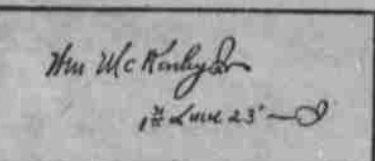 Wm McKinley Jr
1st Lieut 23" — O